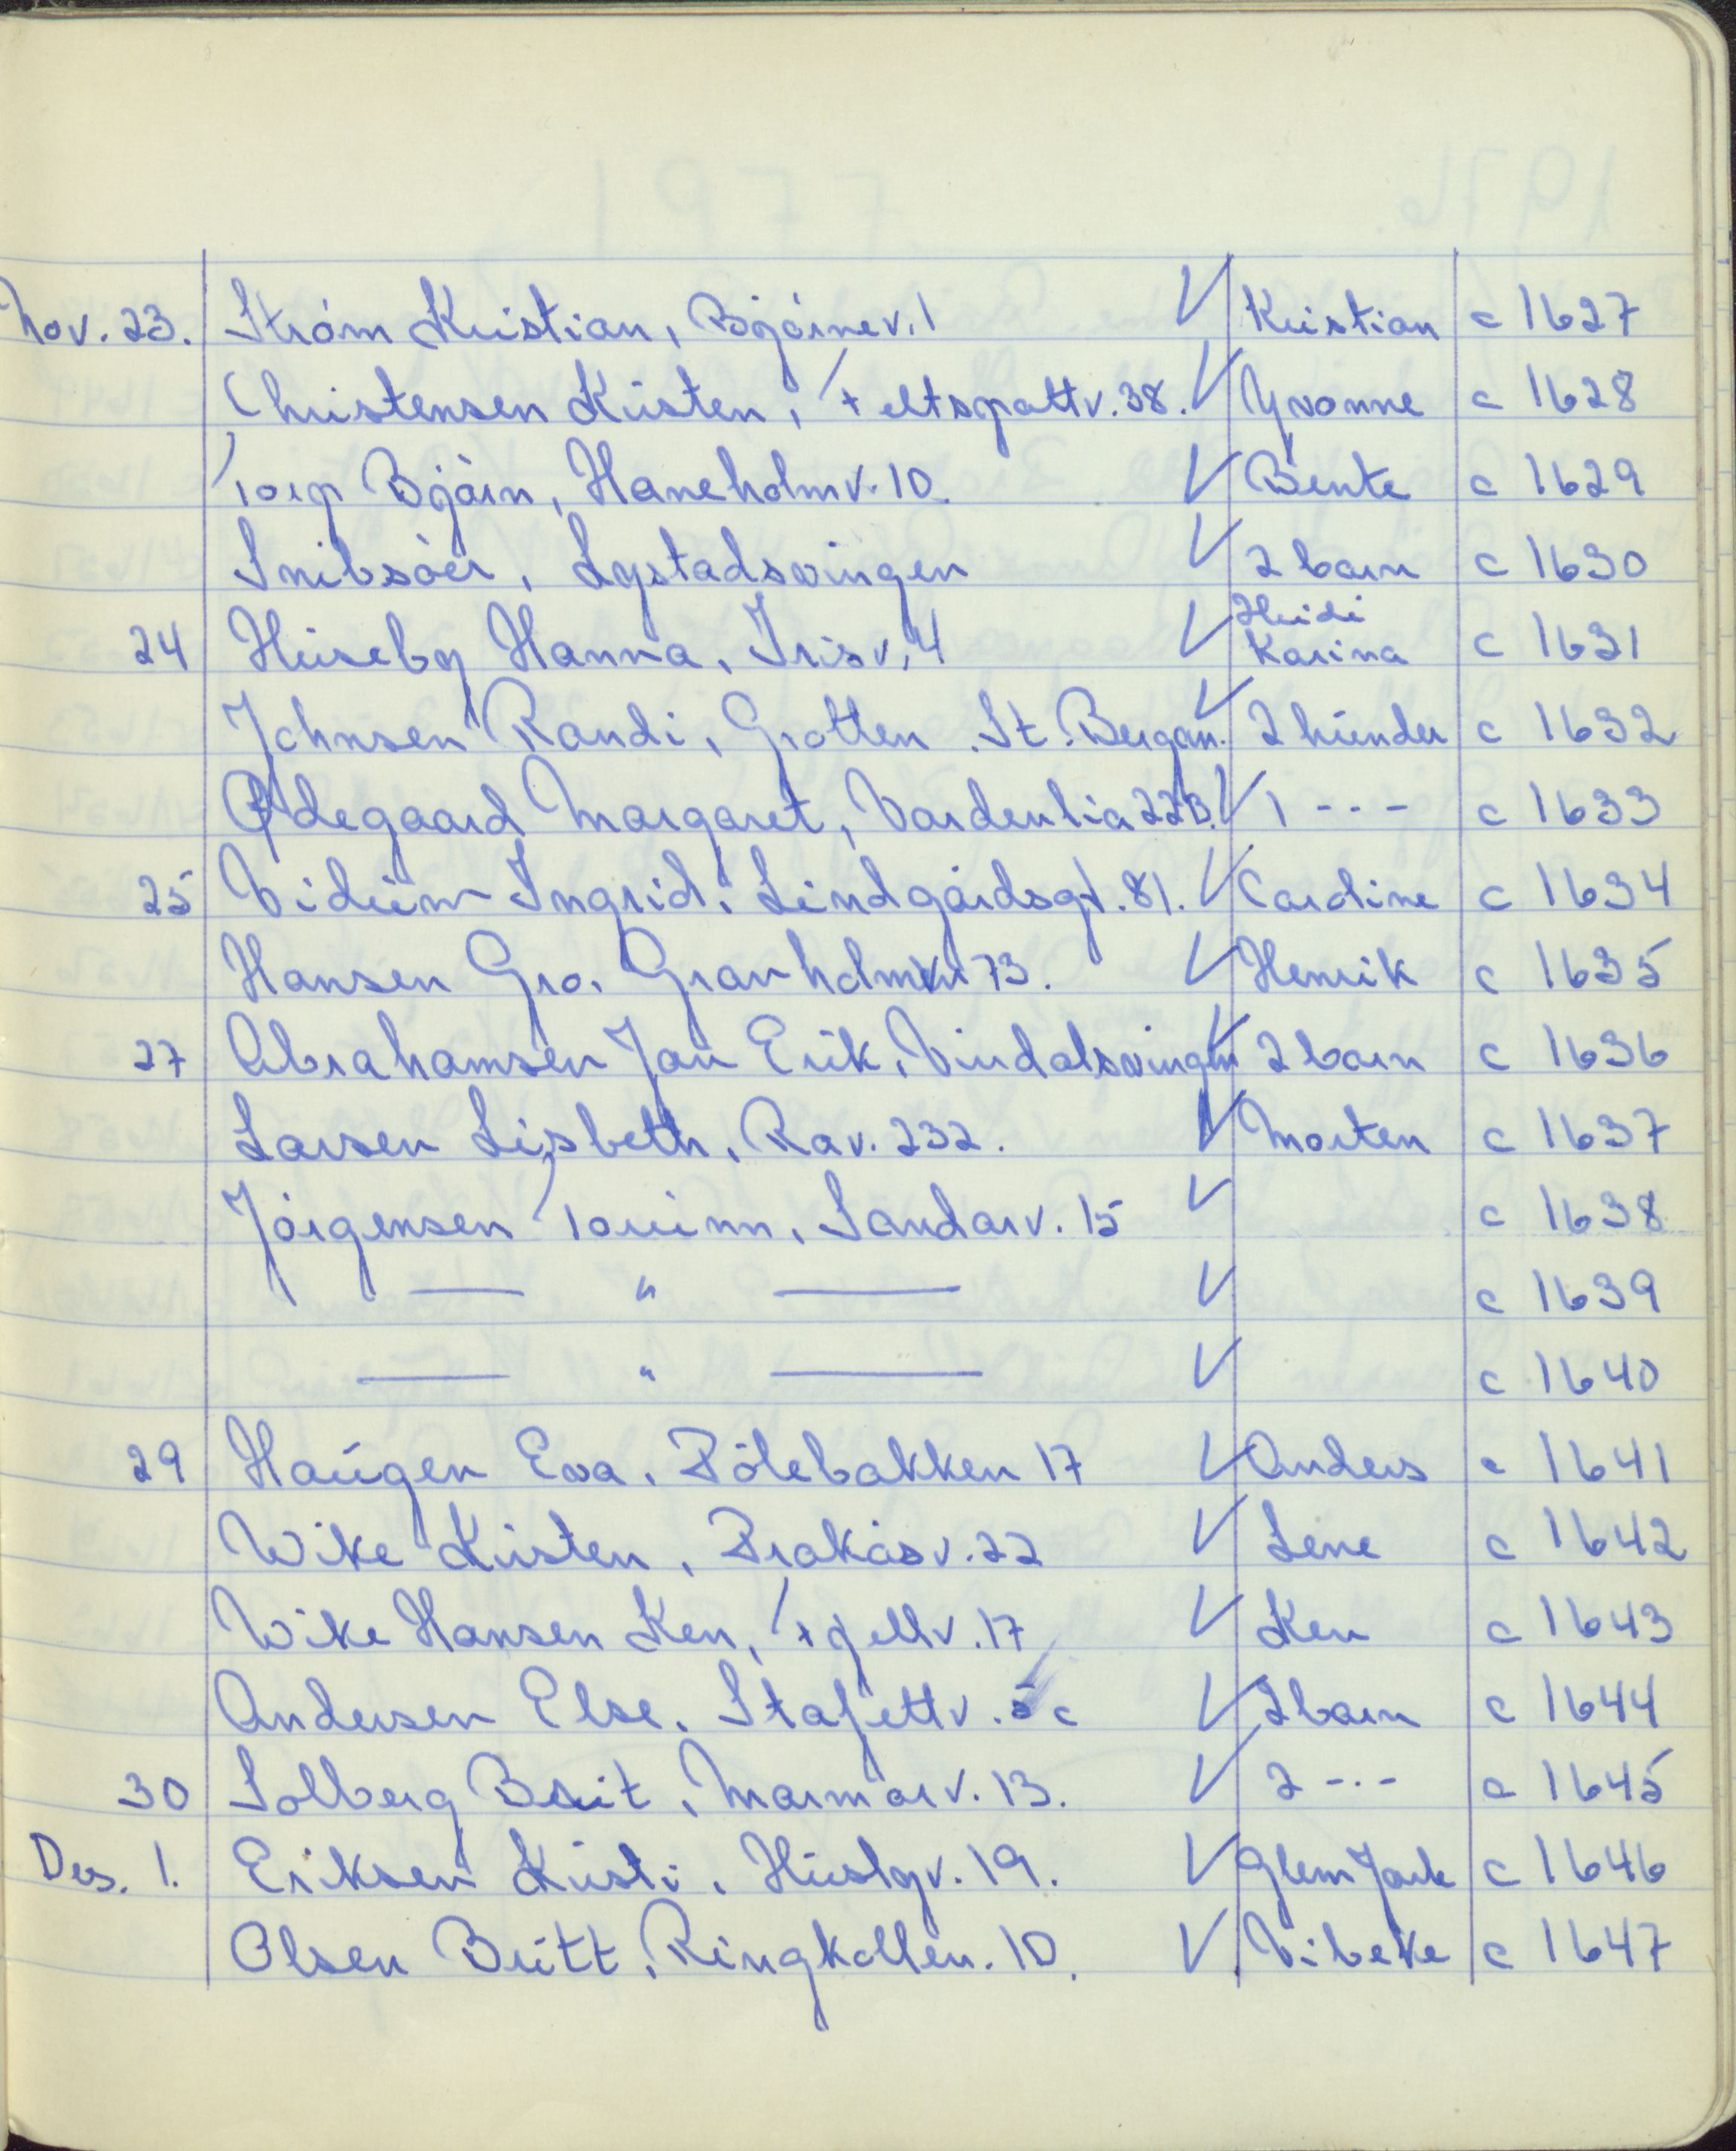 Nov. 23. Ström Kristian, Bjørnev. 1 ✓ Kristian c 1627
Christensen Kirsten, Feltspattv. 38. ✓ Yvonne c 1628
Torp Bjørn, Haneholmv. 10. ✓ Bente c 1629
Snibsøer, Lystadsvingen ✓ 2 barn c 1630
24 Huseby Hanna, Irisv. 4 ✓ Heidi Karina c 1631
Johnsen Randi, Grotten. St. Bergan. ✓ 2 hunder c 1632
Ødegaard Margaret, Vardenlia 22B. ✓ 1 - - - c 1633
25 Ingrid, Lindgårdsgt. 81. ✓ Caroline c 1634
Hansen Gro, Granholmv 73. ✓ Henrik c 1635
27 Abrahamsen Jan Erik, Vindalsvingen ✓ 2 barn c 1636
Larsen Lisbeth, Rav. 232. ✓ Morten c 1637
Jørgensen Torunn, Sandarv. 15 ✓ c 1638
— " — ✓ c 1639
— " — ✓ c 1640
29 Haugen Eva, Pølebakken 17 ✓ Anders c 1641
Wike Kirsten, Fråkåsv. 22 ✓ Lene c 1642
Wike Hansen Ken, Fjellv. 17 ✓ Ken c 1643
Andersen Else, Stafettv. 5c ✓ 2 barn c 1644
30 Solberg Brit, Marmorv. 13. ✓ 2 - - - c 1645
Des. 1. Eriksen Kirsti, Husbyv. 19. ✓ Glenn Jack c 1646
Olsen Britt, Ringkollen. 10. ✓ Vibeke c 1647